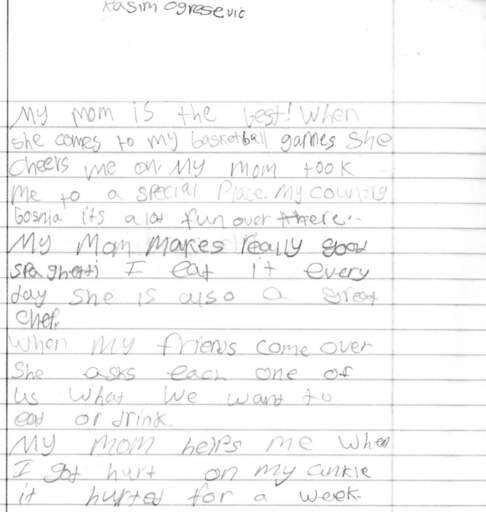 Kasim Ogresevic
My mom is the best! When
she comes to my basketball games she
cheers me on. My mom took
me to a special place. My country
bosnia its a lot fun over there.
My Mom makes really good
spaghetti I eat it every
day she is also a great
chef.
When my friends come over
She asks each one of
us what we want to
eat or drink.
My mom helps me when
I got hurt on my ankle
it hurted for a week.